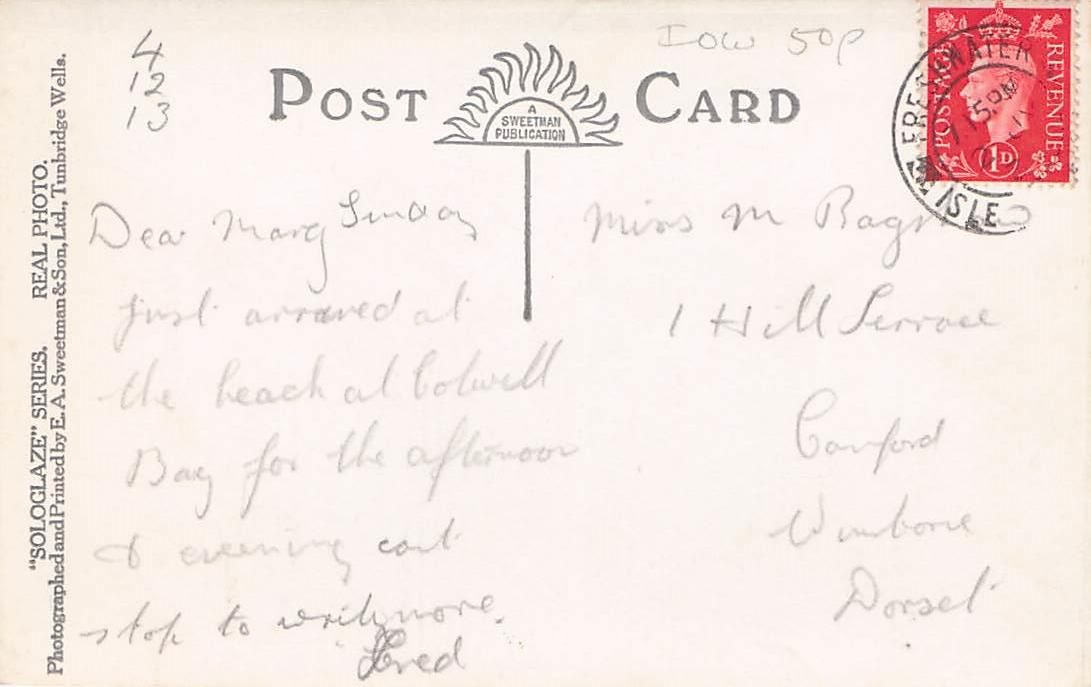 4
12
13
IOW 50p
POST CARD
A
SWEETMAN
PUBLICATION
POSTAGE REVENUE
1D
FRESHWATER
ISLE
"SOLOGLAZE" SERIES. REAL PHOTO.
Photographed and Printed by E. A. Sweetman & Son, Ltd., Tunbridge Wells.
Dear Mary Sunday
just arrived at
the beach at Colwell
Bay for the afternoon
& evening cant
stop to write more.
Fred
Miss M
1 Hill Terrace
Canford
Wimborne
Dorset